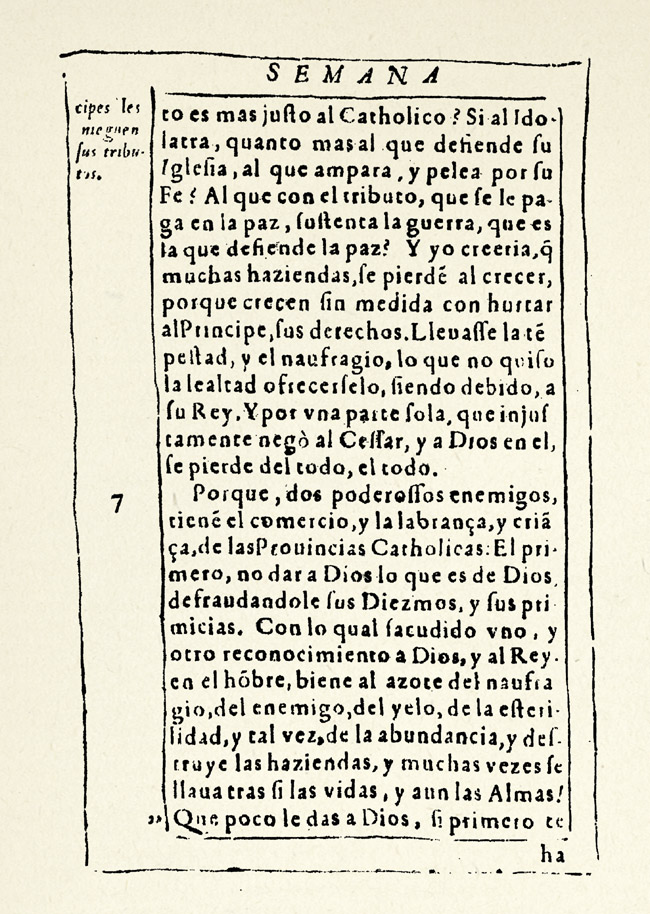 SEMANA
cipes les
nieguen
sus tribu-
tos.
to es mas justo al Catholico? Si al Ido-
latra, quanto mas al que defiende su
Iglesia, al que ampara, y pelea por su
Fe? Al que con el tributo, que se le pa-
ga en la paz, sustenta la guerra, que es
la que defiende la paz? Y yo creeria, q̃
muchas haziendas, se pierdẽ al crecer,
porque crecen sin medida con hurtar
al Principe, sus derechos. Lleuasse la tẽ
pestad, y el naufragio, lo que no quiso
la lealtad ofrecerselo, siendo debido, a
su Rey. Y por vna parte sola, que injus
tamente negò al Cessar, y a Dios en el,
se pierde del todo, el todo.
7
Porque, dos poderossos enemigos,
tienẽ el comercio, y la labrança, y criã
ça, de las Prouincias Catholicas: El pri-
mero, no dar a Dios lo que es de Dios,
defraudandole sus Diezmos, y sus pri
micias. Con lo qual sacudido vno, y
otro reconocimiento a Dios, y al Rey.
en el hõbre, biene al azote del naufra
gio, del enemigo, del yelo, de la esteri-
lidad, y tal vez, de la abundancia, y des-
truye las haziendas, y muchas vezes se
llaua tras si las vidas, y aun las Almas!
,, Que poco le das a Dios, si primero te
hà